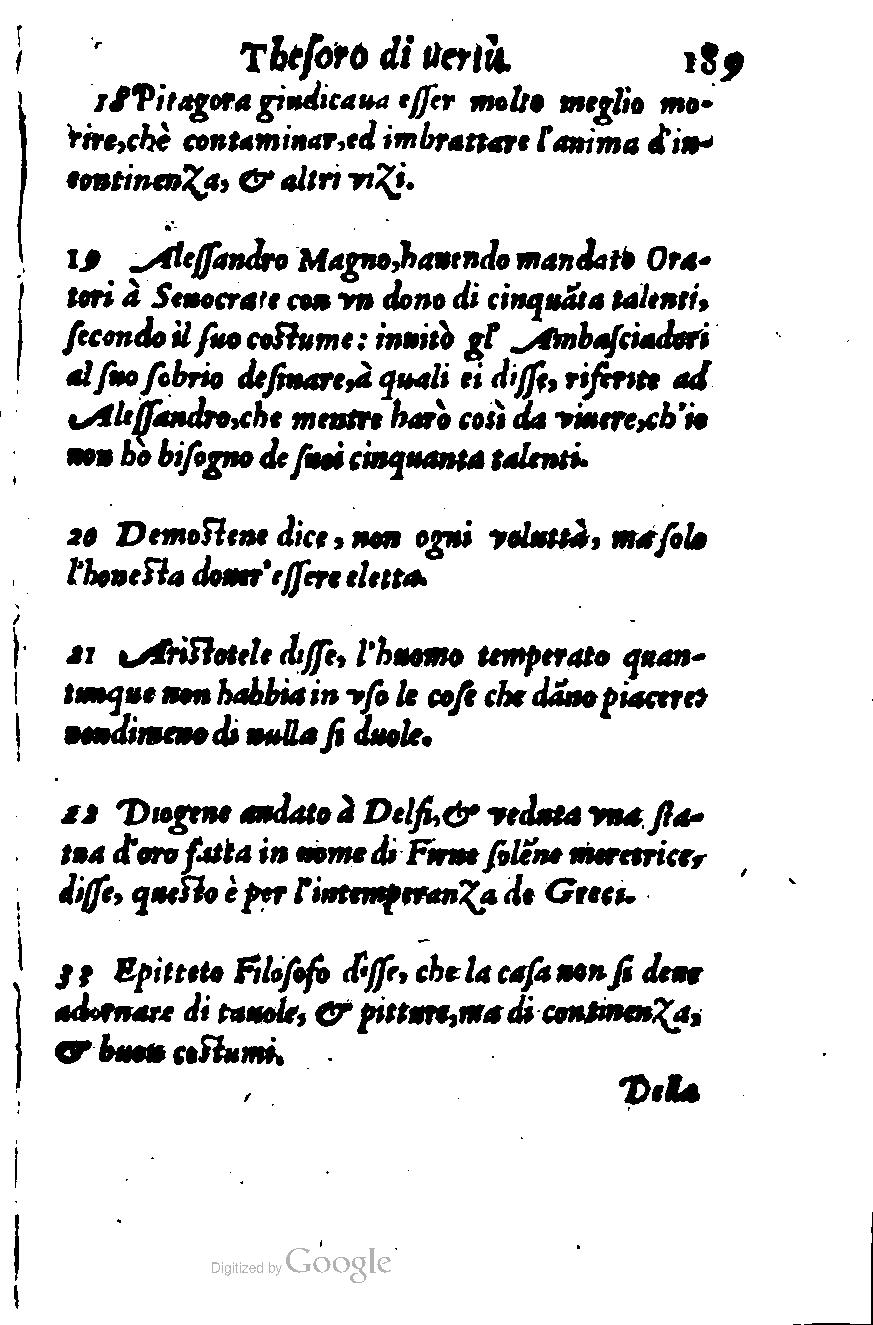 Theſoro di uertù. 189
18 Pitagora giudicaua eſſer molto meglio mo-
rire, chè contaminar, ed imbrattare l'anima d'in-
continenza, & altri vizi.
19 Aleſſandro Magno, hauendo mandato Ora-
tori à Senocrate con vn dono di cinquãta talenti,
ſecondo il ſuo coſtume: inuitò gl' Ambaſciadori
al ſuo ſobrio deſinare, à quali ei diſſe, riferite ad
Aleſſandro, che mentre harò così da viuere, ch'io
non hò biſogno de ſuoi cinquanta talenti.
20 Demoſtene dice, non ogni voluttà, ma ſolo
l'honeſta douer' eſſere eletta.
21 Ariſtotele diſſe, l'huomo temperato quan-
tunque non habbia in vſo le coſe che dãno piacere,
nondimeno di nulla ſi duole.
22 Diogene andato à Delfi, & veduta vna ſta-
tua d'oro fatta in nome di Firne ſolẽne meretrice,
diſſe, queſto è per l'intemperanza de Greci.
33 Epitteto Filoſofo diſſe, che la caſa non ſi deue
adornare di tauole, & pitture, ma di continenza,
& buon coſtumi.
Della
Digitized by Google